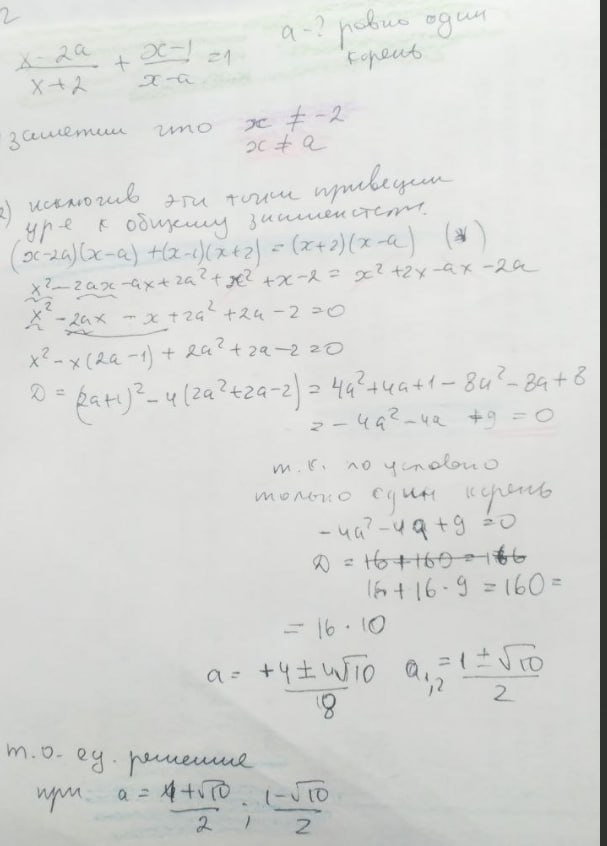 2
x-2a/x+2 + x-1/x-a = 1 a-? ровно один
корень
заметим что x ≠ -2
x ≠ a
2) исключив эти точки приведем
ур-е к общему знаменател.
(x-2a)(x-a) + (x-1)(x+2) = (x+2)(x-a) (*)
x²-2ax-ax+2a²+x²+x-2 = x²+2x-ax-2a
x²-2ax-x+2a²+2a-2=0
x²-x(2a-1)+2a²+2a-2=0
D = (2a+1)²-4(2a²+2a-2) = 4a²+4a+1-8a²-8a+8
= -4a²-4a+9=0
т.к. по условию
только один корень
-4a²-4a+9=0
D = 16+160=166
16+16·9=160=
=16·10
a = +4±4√10/8 a₁,₂ = 1±√10/2
т.о. ед. решение
при a = 1+√10/2 ; 1-√10/2